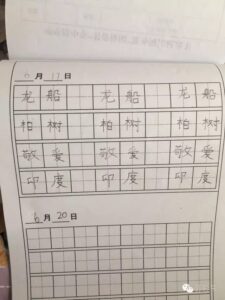 6月17日
龙船 龙船 龙船
柏树 柏树 柏树
敬爱 敬爱 敬爱
印度 印度 印度
6月20日